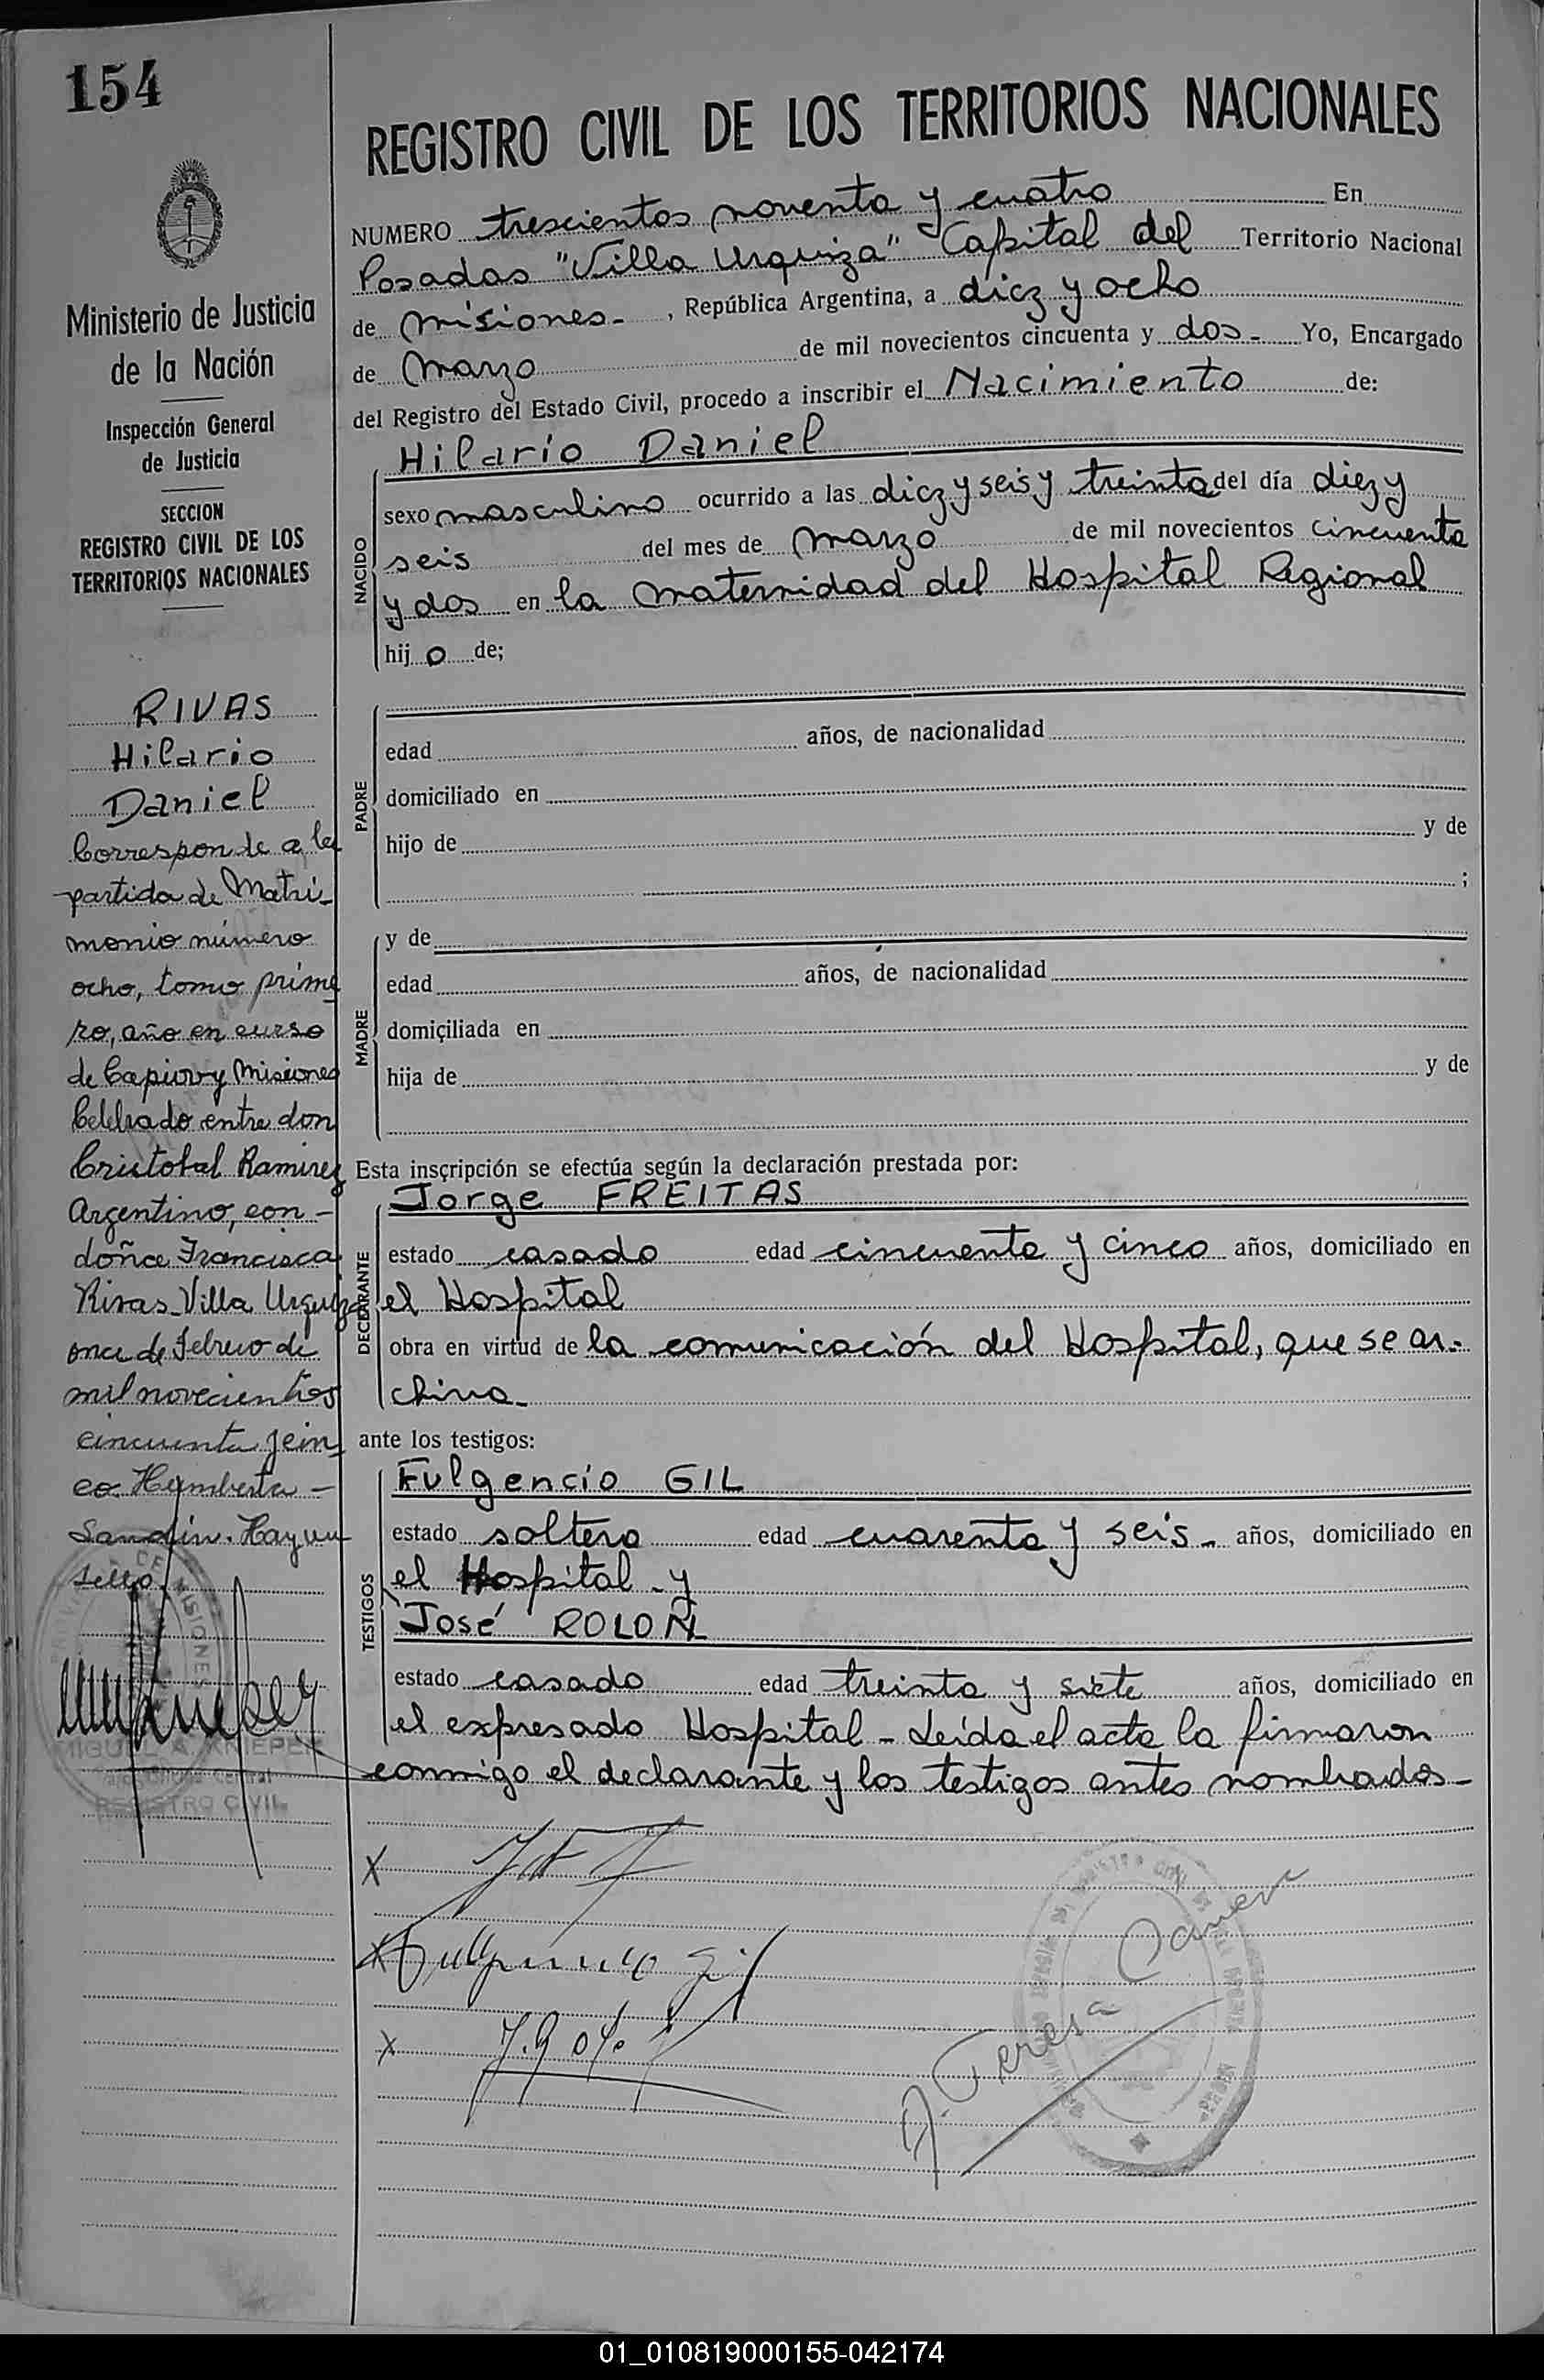 154
Ministerio de Justicia
de la Nación
Inspección General
de Justicia
SECCION
REGISTRO CIVIL DE LOS
TERRITORIOS NACIONALES
RIVAS
Hilario
Daniel
Corresponde a la
partida de Matri-
monio número
ocho, tomo prime
ro, año en curso
de Capiovy Misiones
Celebrado entre don
Cristobal Ramirez
Argentino, con -
doña Francisca
Rivas - Villa Urquiza
once de Febrero de
mil novecientos
cincuenta y cin
co. Humberto -
Sandin. Hay un
sello.
MIGUEL A.
REGISTRO CIVIL
REGISTRO CIVIL DE LOS TERRITORIOS NACIONALES
NUMERO trescientos noventa y cuatro En
Posadas "Villa Urquiza" Capital del Territorio Nacional
de Misiones - , República Argentina, a diez y ocho
de Marzo de mil novecientos cincuenta y dos - Yo, Encargado
del Registro del Estado Civil, procedo a inscribir el Nacimiento de:
NACIDO
Hilario Daniel
sexo masculino ocurrido a las diez y seis y treinta del día diez y
seis del mes de Marzo de mil novecientos cincuenta
y dos en la Maternidad del Hospital Regional
hij o de;
PADRE
edad años, de nacionalidad
domiciliado en
hijo de y de
;
MADRE
y de
edad años, de nacionalidad
domiciliada en
hija de y de
Esta inscripción se efectúa según la declaración prestada por:
DECLARANTE
Jorge FREITAS
estado casado edad cincuenta y cinco años, domiciliado en
el Hospital
obra en virtud de la comunicación del Hospital, que se ar-
chiva -
ante los testigos:
TESTIGOS
Fulgencio GIL
estado soltero edad cuarenta y seis - años, domiciliado en
el Hospital - y
José ROLON
estado casado edad treinta y siete años, domiciliado en
el expresado Hospital - Leída el acta la firmaron
conmigo el declarante y los testigos antes nombrados -
X
X Fulgencio Gil
X
Teresa
01_010819000155-042174